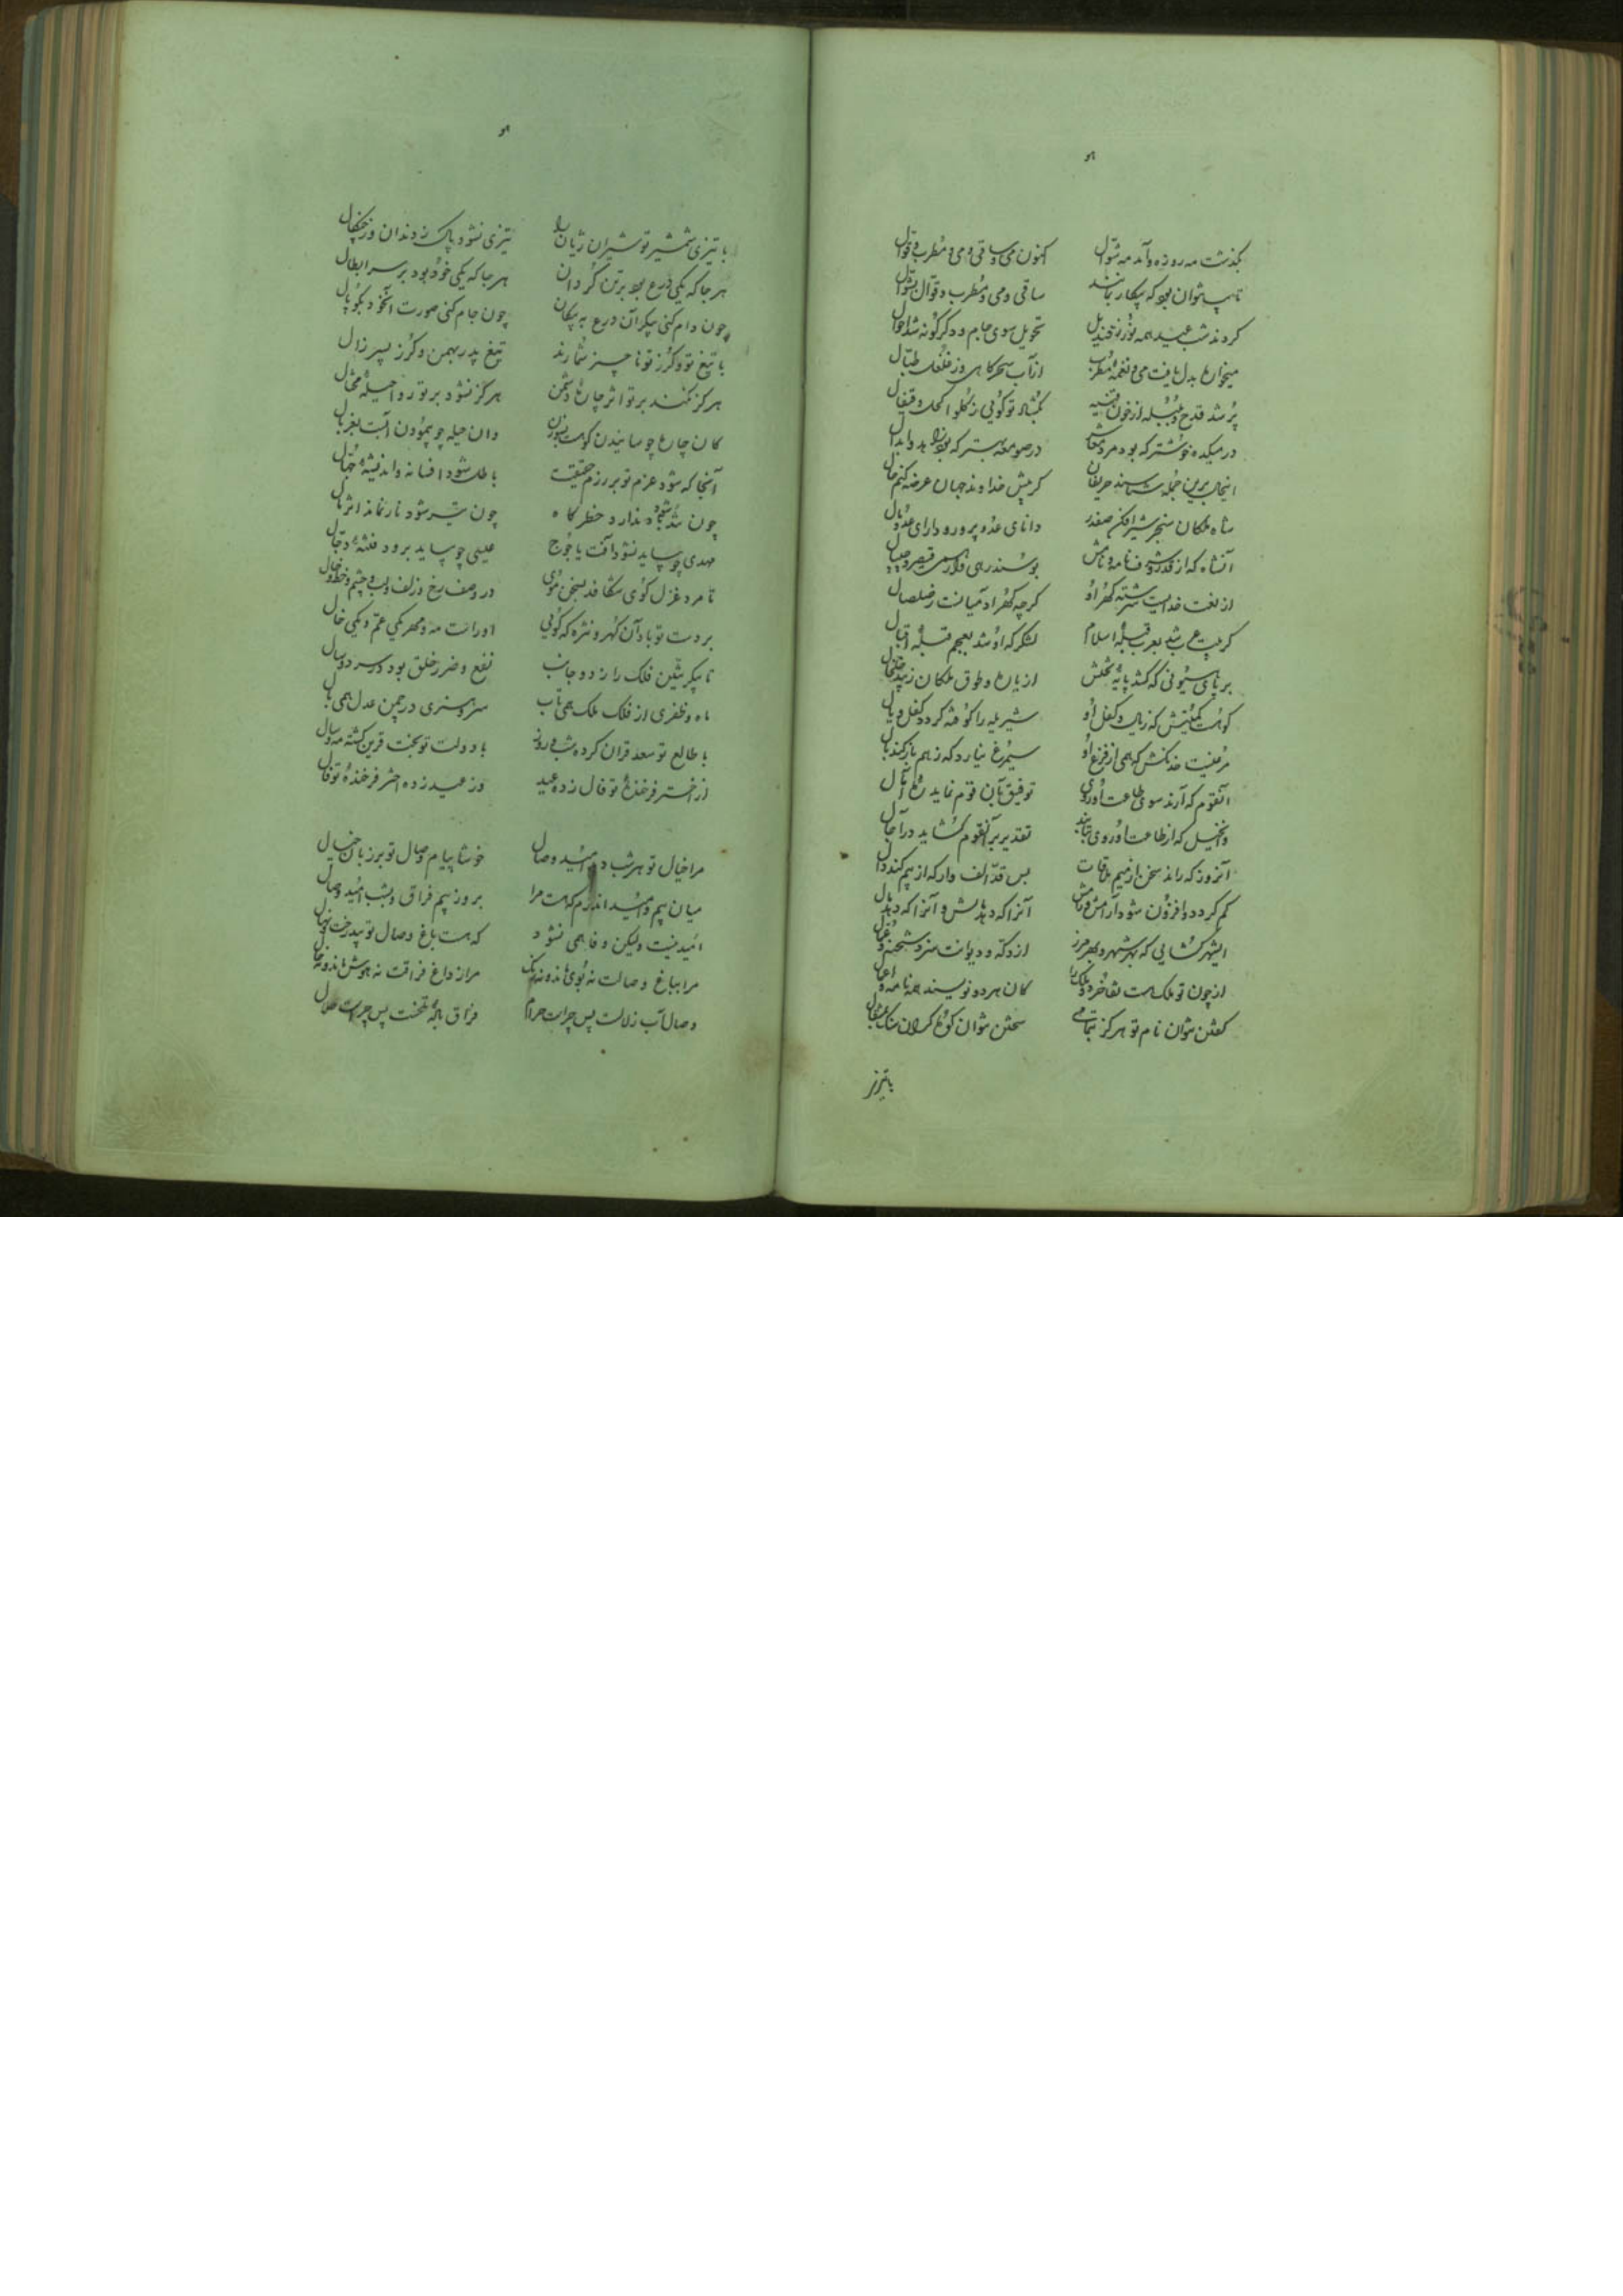 بگذشت مه روزه و آمد مه شوال اکنون می و ساقی و می و مطرب و قوال
ساقی و می و مطرب و قوال بشوال
کردند شب عید همه نور ز قندیل تحویل سوی جام و دگرگونه شد احوال
میخوارن بدل یافت می و نغمه مطرب از آب سحرگاهی وز غلغل طبال
پر شد قدح و بلبله از خون قنینه بگشاد توگوئی ز گلو اکحل و قیفال
در میکده خوشتر که بود مردم قلاش در صومعه بهتر که بود زاهد و ابدال
گر پیش خداوند جهان عرضه کنم حال
شاه ملکان سنجر شیرافکن صفدر دانای عدو پرور و دارای عدو مال
آنشاه که از قدر و شرف نامه و نامش بوسند رهی‌وار
از لعنت خدایست سرشته گهر او گرچه گهر آدمیانست ز صلصال
گر بیت عرب شد بعرب قبله اسلام لشکرگه او شد بعجم قبله اقبال
بر پای ستونی که کشد پایه تختش از یاره و طوق ملکان زیبد خلخال
کوهست کمیتش که ز یال و کفل او شیر یله را کوفته گردد کفل و یال
مرغیست خدنگش که همی از فزع او سیمرغ نیارد که ز هم باز کند بال
آنقوم که آرند سوی طاعت او روی توفیق بآن قوم نماید ره آمال
وانخیل که از طاعت او روی بتابند تقدیر بر آنقوم گشاید در آجال
آنروز که راند سخن از میم ملاقات بس قد الف وار که از بیم کند دال
کم گردد و افزون شود آرامش و رامش آنرا که دهد مالش و آنرا که دهد مال
ایشهر گشایی که بهر شهر و بهر مرز از دکه و دیوانت سزد شحنه و عمال
از چون تو ملک هست تفاخر دو ملک را کان هر دو نویسند همه نامه اعمال
گفتن نتوان نام تو هرگز بتمامی سختن نتوان کوه گران سنگ بمثقال
با تیزی
با تیزی شمشیر تو شیران ژیان را تیزی نشود پاک ز دندان و ز چنگال
هر جا که یکی درع بود بر تن گردان هر جا که یکی خود بود بر سر ابطال
چون دام کنی پیکر آن درع به پیکان چون جام کنی صورت آنخود بکوپال
با تیغ تو و گرز تو ناچیز شمارند تیغ پدر بهمن و گرز پسر زال
هرگز نکند بر تو اثر چاره دشمن هرگز نشود بر تو روا حیله محتال
کان چاره چو سائیدن کوهست بسوزن وان حیله چو پیمودن آبست بغربال
آنجا که شود عزم تو بر رزم حقیقت باطل شود افسانه و اندیشه جهال
چون شد شجر دیندار و خطرگاه چون شیر شود نار نماند اثر نال
مهدی چو بیاید نشود آفت یاجوج عیسی چو بیاید برود فتنه دجال
تا مرد غزل گوی شکافد بسخن موی در وصف رخ و زلف و لب و چشم و خط و خال
بر دست تو باد آن گهر و نثره که گوئی او راست مه و مهر یکی عم و یکی خال
تا پیکر تنین فلک را ز دو جانب نفع و ضرر خلق بود در سر و دنبال
ماه ظفری از فلک ملک همی تاب سرو هنری در چمن عدل همی بال
با طالع تو سعد قران کرده شب و روز با دولت تو بخت قرین گشته مه و سال
از اختر فرخنده تو فال زده عید وز عید زده اختر فرخنده تو فال
مرا خیال تو هر شب دهد امید وصال خوشا پیام وصال تو بر زبان خیال
میان بیم و امید اندرم که هست مرا بروز بیم فراق و بشب امید وصال
امید نیست ولیکن وفا همی نشود که هست باغ وصال تو بید رخت نهال
مرا بباغ وصالت نه بوی ماند و نه رنگ مرا ز داغ فراقت نه هوش ماند و نه حال
وصال آب زلالست پس چراست حرام فراق باده تلخست پس چراست حلال